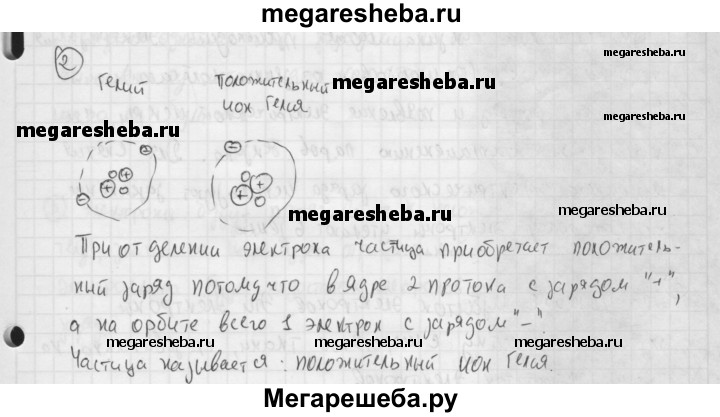 megaresheba.ru
megaresheba.ru
2
Гелий положительный megaresheba.ru
ион Гелия
megaresheba.ru
- -
+ + + +
-
megaresheba.ru megaresheba.ru
При отделении электрона частица приобретает положитель-
ный заряд потому что в ядре 2 протона с зарядом "+",
а на орбите всего 1 электрон с зарядом "-".
megaresheba.ru megaresheba.ru
Частица называется: положительный ион Гелия.
Мегарешеба.ру